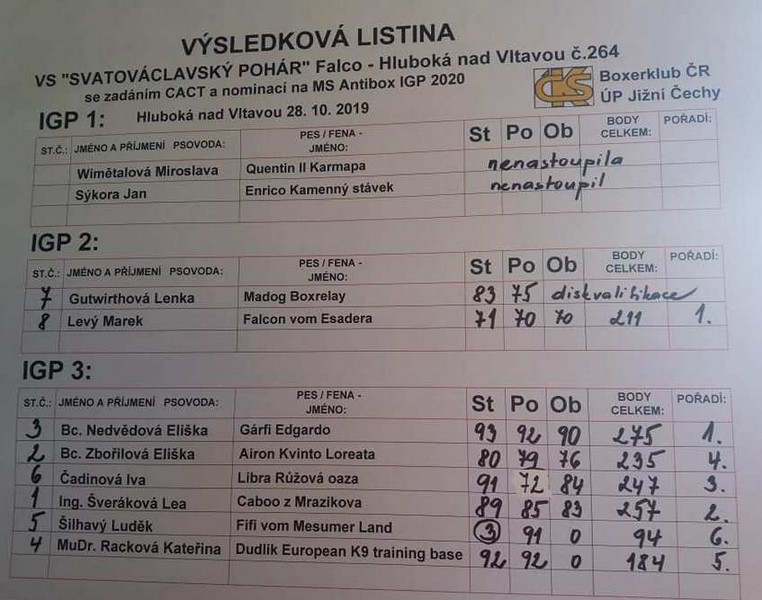 VÝSLEDKOVÁ LISTINA
VS "SVATOVÁCLAVSKÝ POHÁR" Falco - Hluboká nad Vltavou č.264
se zadáním CACT a nominací na MS Antibox IGP 2020
Boxerklub ČR
ÚP Jižní Čechy
IGP 1: Hluboká nad Vltavou 28. 10. 2019
ST.Č.: JMÉNO A PŘÍJMENÍ PSOVODA: PES / FENA - JMÉNO: St Po Ob BODY CELKEM: POŘADÍ:
Wimětalová Miroslava Quentin II Karmapa nenastoupila
Sýkora Jan Enrico Kamenný stávek nenastoupil
IGP 2:
ST.Č.: JMÉNO A PŘÍJMENÍ PSOVODA: PES / FENA - JMÉNO: St Po Ob BODY CELKEM: POŘADÍ:
7 Gutwirthová Lenka Madog Boxrelay 83 75 diskvalifikace
8 Levý Marek Falcon vom Esadera 71 70 70 211 1.
IGP 3:
ST.Č.: JMÉNO A PŘÍJMENÍ PSOVODA: PES / FENA - JMÉNO: St Po Ob BODY CELKEM: POŘADÍ:
3 Bc. Nedvědová Eliška Gárfi Edgardo 93 92 90 275 1.
2 Bc. Zbořilová Eliška Airon Kvinto Loreata 80 79 76 235 4.
6 Čadinová Iva Libra Růžová oaza 91 72 84 247 3.
1 Ing. Šveráková Lea Caboo z Mrazikova 89 85 83 257 2.
5 Šilhavý Luděk Fifi vom Mesumer Land 3 91 0 94 6.
4 MuDr. Racková Kateřina Dudlik European K9 training base 92 92 0 184 5.